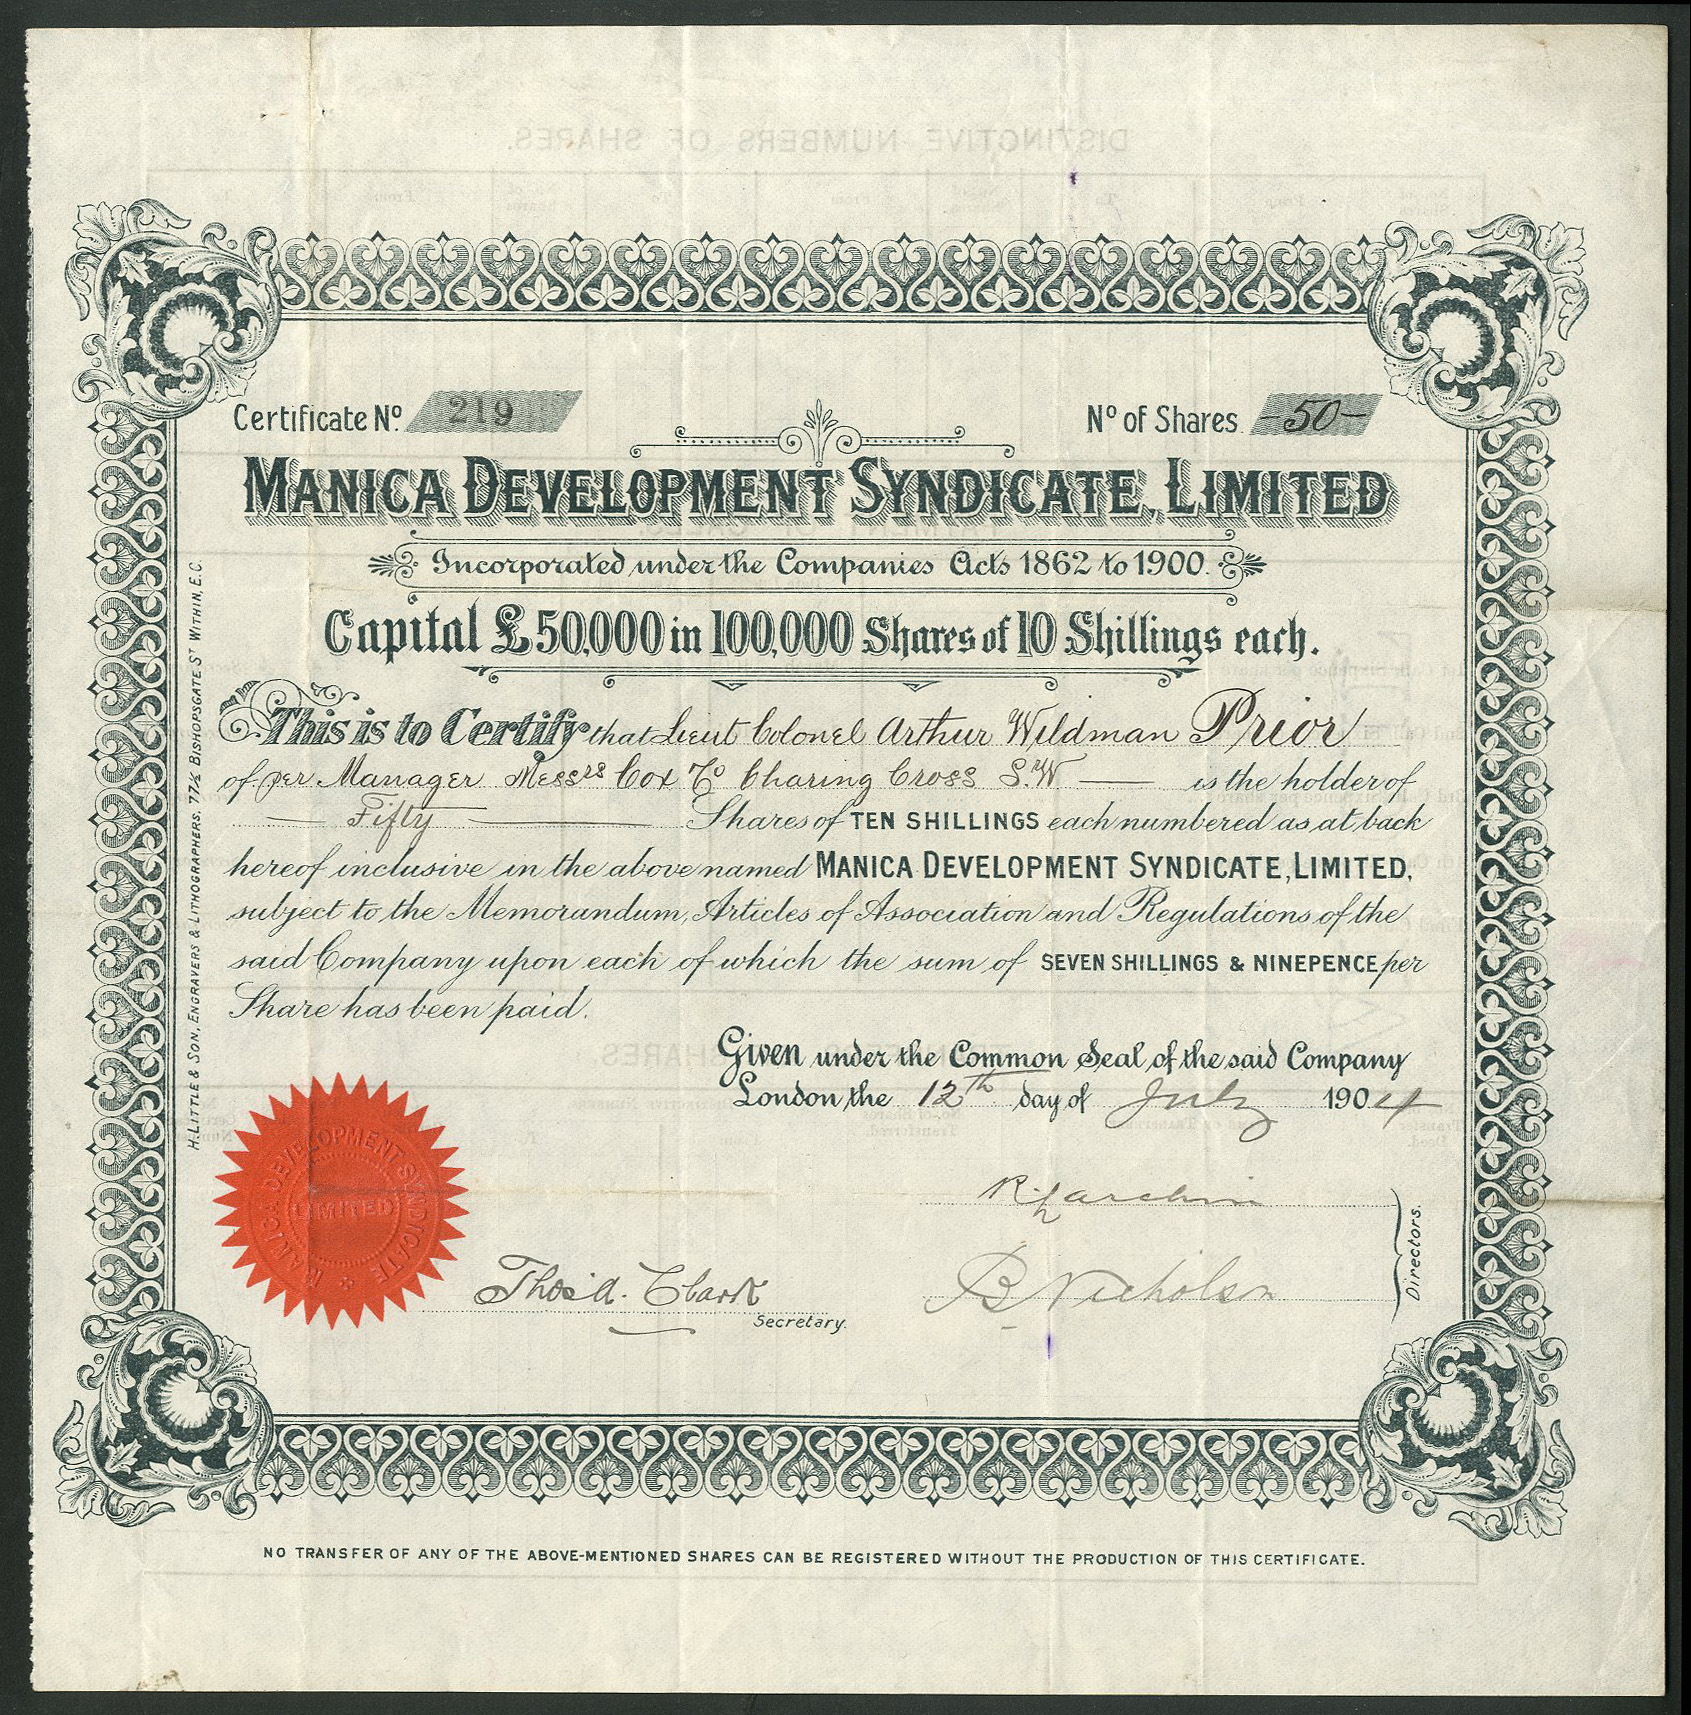 DISTINCTIVE NUMBERS OF SHARES.
Certificate No. 219
No of Shares -50-
MANICA DEVELOPMENT SYNDICATE, LIMITED
Incorporated under the Companies Acts 1862 to 1900.
Capital £50,000 in 100,000 Shares of 10 Shillings each.
This is to Certify that Lieut Colonel Arthur Wildman Prior
of per Manager Messrs Cox & Co Charing Cross S.W — is the holder of
— Fifty — Shares of TEN SHILLINGS each numbered as at back
hereof inclusive in the above named MANICA DEVELOPMENT SYNDICATE, LIMITED,
subject to the Memorandum, Articles of Association and Regulations of the
said Company upon each of which the sum of SEVEN SHILLINGS & NINEPENCE per
Share has been paid.
Given under the Common Seal of the said Company
London, the 12th day of July 1904
MANICA DEVELOPMENT SYNDICATE
LIMITED
Thos. A. Clark
Secretary.
B Nicholson
Directors.
H. LITTLE & SON, ENGRAVERS & LITHOGRAPHERS, 77½ BISHOPSGATE ST WITHIN, E.C.
NO TRANSFER OF ANY OF THE ABOVE-MENTIONED SHARES CAN BE REGISTERED WITHOUT THE PRODUCTION OF THIS CERTIFICATE.